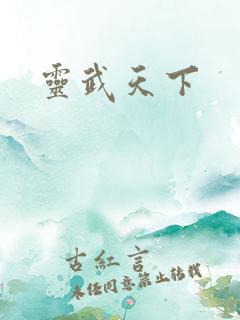 靈武天下
古紅言
未经同意禁止转载